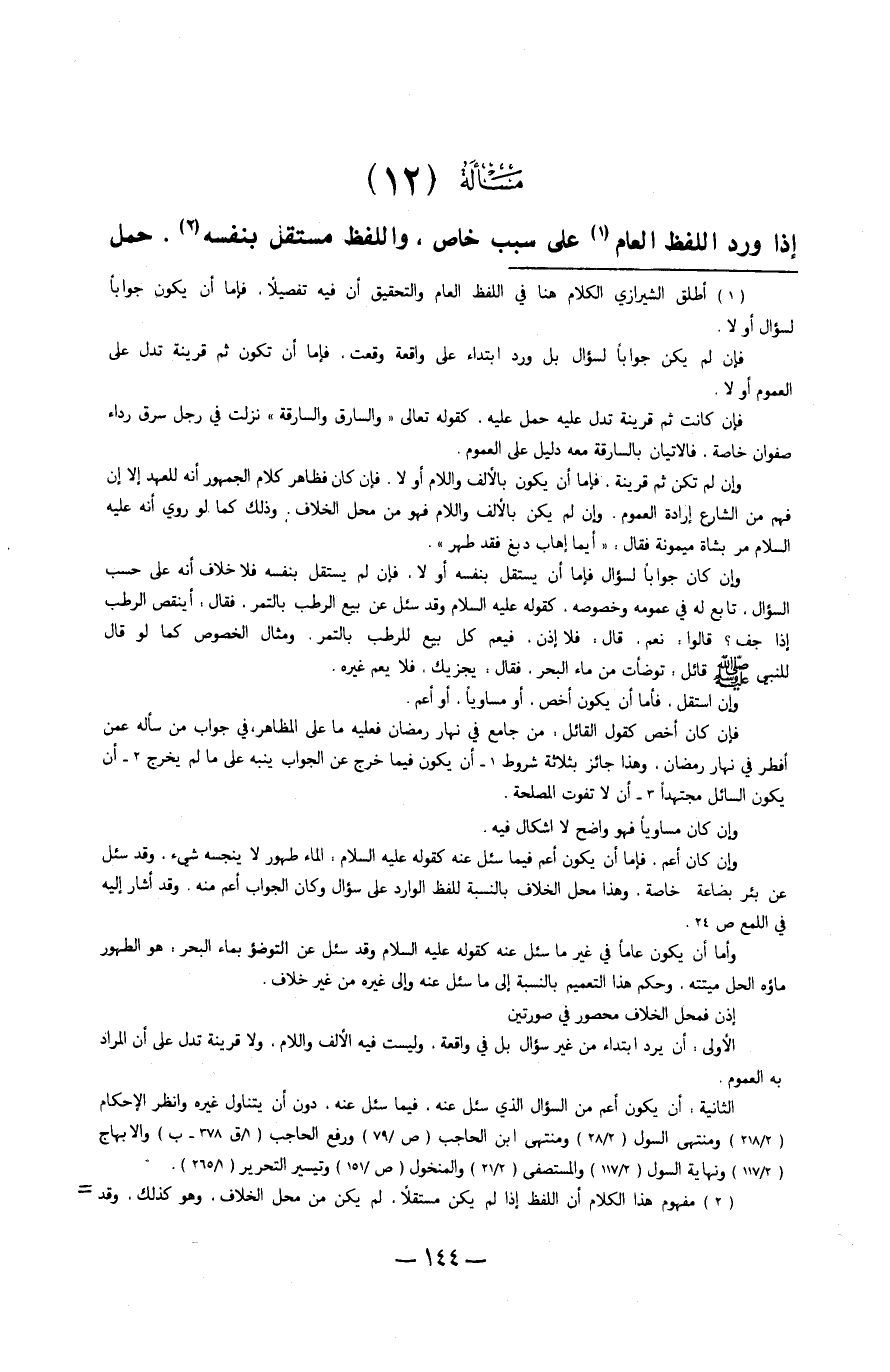 مَسْأَلَة (١٢)
إذا ورد اللفظ العام (١) على سبب خاص ، واللفظ مستقل بنفسه (٢) . حمل
( ١ ) أطلق الشيرازي الكلام هنا في اللفظ العام والتحقيق أن فيه تفصيلًا . فإما أن يكون جواباً
لسؤال أو لا .
فإن لم يكن جواباً لسؤال بل ورد ابتداء على واقعة وقعت . فإما أن تكون ثم قرينة تدل على
العموم أو لا .
فإن كانت ثم قرينة تدل عليه حمل عليه . كقوله تعالى « والسارق والسارقة » نزلت في رجل سرق رداء
صفوان خاصة . فالاتيان بالسارقة معه دليل على العموم .
وإن لم تكن ثم قرينة . فإما أن يكون بالألف واللام أو لا . فإن كان فظاهر كلام الجمهور أنه للعهد إلا إن
فهم من الشارع إرادة العموم . وإن لم يكن بالألف واللام فهو من محل الخلاف . وذلك كما لو روي أنه عليه
السلام مر بشاة ميمونة فقال : « أيما إهاب دبغ فقد طهر » .
وإن كان جواباً لسؤال فإما أن يستقل بنفسه أو لا . فإن لم يستقل بنفسه فلا خلاف أنه على حسب
السؤال . تابع له في عمومه وخصوصه . كقوله عليه السلام وقد سئل عن بيع الرطب بالتمر . فقال : أينقص الرطب
إذا جف ؟ قالوا : نعم . قال : فلا إذن . فيعم كل بيع للرطب بالتمر . ومثال الخصوص كما لو قال
للنبي ﷺ قائل : توضأت من ماء البحر . فقال : يجزيك . فلا يعم غيره .
وإن استقل . فأما أن يكون أخص . أو مساوياً . أو أعم .
فإن كان أخص كقول القائل : من جامع في نهار رمضان فعليه ما على المظاهر، في جواب من سأله عمن
أفطر في نهار رمضان . وهذا جائز بثلاثة شروط ١ ـ أن يكون فيما خرج عن الجواب ينبه على ما لم يخرج ٢ ـ أن
يكون السائل مجتهداً ٣ ـ أن لا تفوت المصلحة .
وإن كان مساوياً فهو واضح لا اشكال فيه .
وإن كان أعم . فإما أن يكون أعم فيما سئل عنه كقوله عليه السلام : الماء طهور لا ينجسه شيء . وقد سئل
عن بئر بضاعة خاصة . وهذا محل الخلاف بالنسبة للفظ الوارد على سؤال وكان الجواب أعم منه . وقد أشار إليه
في اللمع ص ٢٤ .
وأما أن يكون عاماً في غير ما سئل عنه كقوله عليه السلام وقد سئل عن التوضؤ بماء البحر : هو الطهور
ماؤه الحل ميتته . وحكم هذا التعميم بالنسبة إلى ما سئل عنه وإلى غيره من غير خلاف .
إذن فمحل الخلاف محصور في صورتين
الأولى : أن يرد ابتداء من غير سؤال بل في واقعة . وليست فيه الألف واللام . ولا قرينة تدل على أن المراد
به العموم .
الثانية : أن يكون أعم من السؤال الذي سئل عنه . فيما سئل عنه . دون أن يتناول غيره وانظر الإحكام
( ٢١٨/٢ ) ومنتهى السول ( ٢٨/٢ ) ومنتهى ابن الحاجب ( ص /٧٩ ) ورفع الحاجب ( ١/ق ٣٧٨ ـ ب ) والابهاج
( ١١٧/٢ ) ونهاية السول ( ١١٧/٢ ) والمستصفى ( ٢١/٢ ) والمنخول ( ص /١٥١ ) وتيسير التحرير ( ٢٦٥/١ ) .
( ٢ ) مفهوم هذا الكلام أن اللفظ إذا لم يكن مستقلاً . لم يكن من محل الخلاف . وهو كذلك . وقد =
— ١٤٤ —